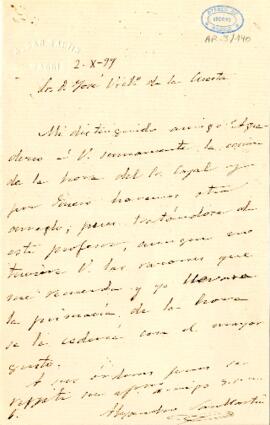 AP-3/140
2-X-99
Sr. D. José Victo. de la Cuesta
Mi distinguido amigo: Agra-
dezco á V. sumamente la
de la hora del Sr. Cajal y
por Enero haremos otro
arreglo; pues tratándose de
este profesor, aunque no
tuviera V. las razones que
me recuerda y yo llevara
la primacia de la hora
se la cederia con el mayor
gusto.
A sus órdenes
affmo amigo
Alejandro San Martín